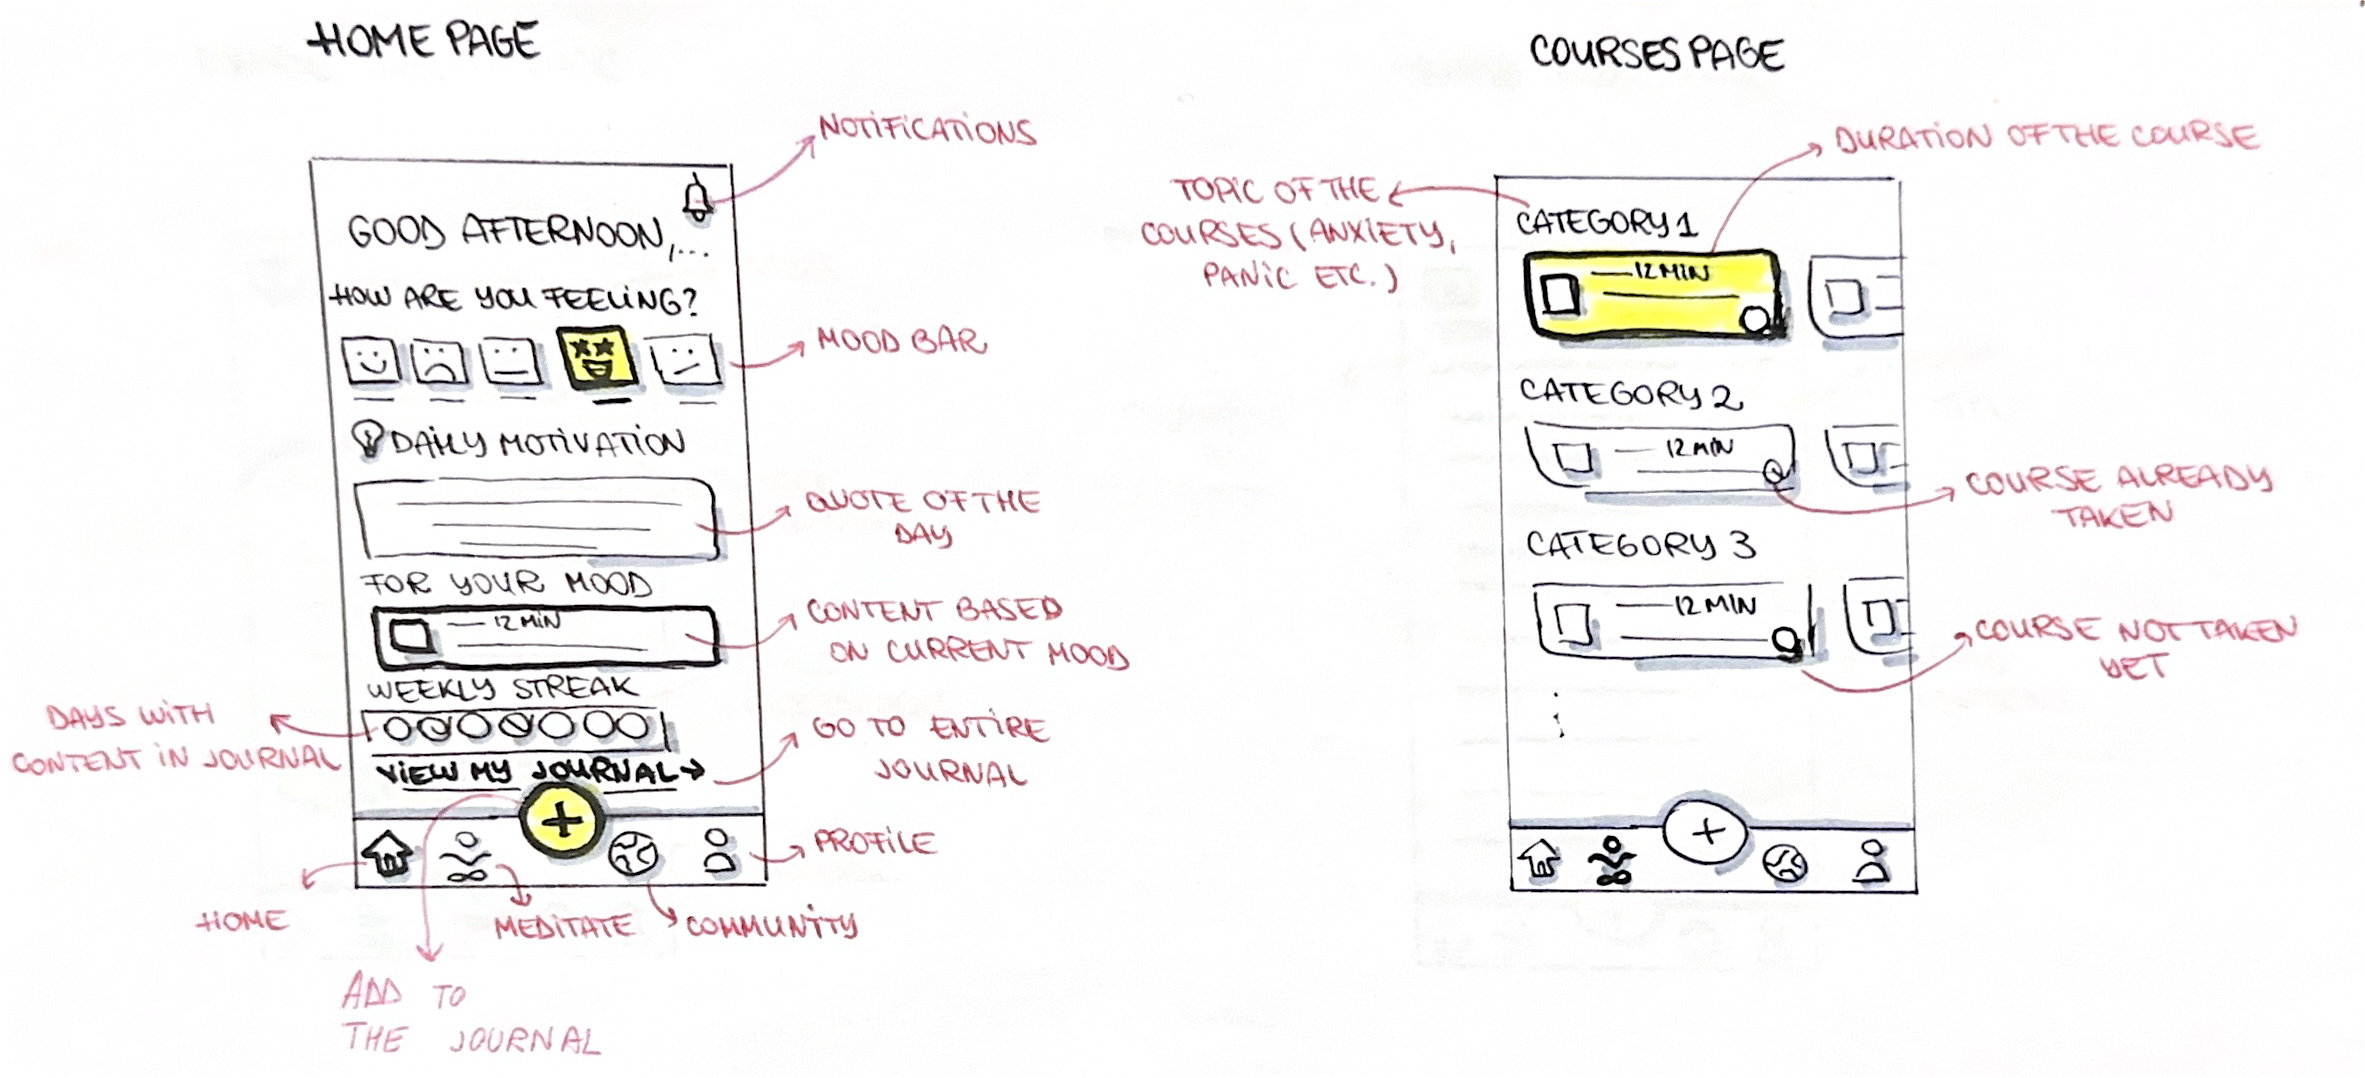 HOME PAGE
NOTIFICATIONS
GOOD AFTERNOON,...
HOW ARE YOU FEELING?
MOOD BAR
DAILY MOTIVATION
QUOTE OF THE
DAY
FOR YOUR MOOD
12 MIN
CONTENT BASED
ON CURRENT MOOD
WEEKLY STREAK
DAYS WITH
CONTENT IN JOURNAL
VIEW MY JOURNAL →
GO TO ENTIRE
JOURNAL
+
PROFILE
HOME
MEDITATE
COMMUNITY
ADD TO
THE JOURNAL
COURSES PAGE
DURATION OF THE COURSE
TOPIC OF THE
COURSES (ANXIETY,
PANIC ETC.)
CATEGORY 1
12 MIN
CATEGORY 2
12 MIN
COURSE ALREADY
TAKEN
CATEGORY 3
12 MIN
COURSE NOT TAKEN
YET
+